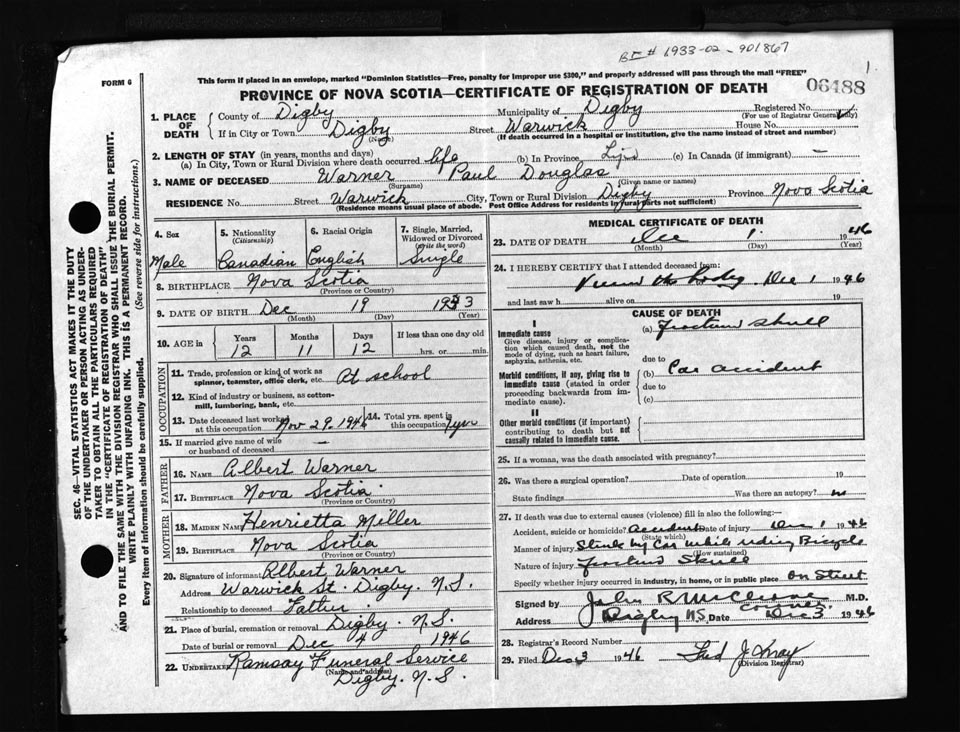 BE # 1933-02-901867
1.
FORM 6
This form if placed in an envelope, marked "Dominion Statistics—Free, penalty for improper use $300," and properly addressed will pass through the mail "FREE"
06488
PROVINCE OF NOVA SCOTIA—CERTIFICATE OF REGISTRATION OF DEATH
SEC. 46—VITAL STATISTICS ACT MAKES IT THE DUTY
OF THE UNDERTAKER OR PERSON ACTING AS UNDER-
TAKER TO OBTAIN ALL THE PARTICULARS REQUIRED
IN THE "CERTIFICATE OF REGISTRATION OF DEATH"
AND TO FILE THE SAME WITH THE DIVISION REGISTRAR WHO SHALL ISSUE THE BURIAL PERMIT.
WRITE PLAINLY WITH UNFADING INK. THIS IS A PERMANENT RECORD.
Every item of Information should be carefully supplied. (See reverse side for instructions.)
1. PLACE OF DEATH County of Digby Municipality of Digby Registered No.
(For use of Registrar General only)
If in City or Town Digby Street Warwick House No.
(Name) (If death occurred in a hospital or institution, give the name instead of street and number)
2. LENGTH OF STAY (in years, months and days)
(a) In City, Town or Rural Division where death occurred life (b) In Province Life (c) In Canada (if immigrant) —
3. NAME OF DECEASED Warner Paul Douglas
(Surname) (Given name or names)
RESIDENCE No. Street Warwick City, Town or Rural Division Digby Province Nova Scotia
(Residence means usual place of abode. Post Office Address for residents in rural parts not sufficient)
4. Sex 5. Nationality (Citizenship) 6. Racial Origin 7. Single, Married, Widowed or Divorced (Write the word)
Male Canadian English Single
8. BIRTHPLACE Nova Scotia
(Province or Country)
9. DATE OF BIRTH Dec 19 1933
(Month) (Day) (Year)
10. AGE in Years Months Days If less than one day old
12 11 12 hrs. or min.
OCCUPATION
11. Trade, profession or kind of work as spinner, teamster, office clerk, etc. At school
12. Kind of industry or business, as cotton-mill, lumbering, bank, etc.
13. Date deceased last worked at this occupation Nov 29, 1946 14. Total yrs. spent in this occupation 7 yrs
15. If married give name of wife or husband of deceased —
FATHER
16. NAME Albert Warner
17. BIRTHPLACE Nova Scotia
(Province or Country)
MOTHER
18. MAIDEN NAME Henrietta Miller
19. BIRTHPLACE Nova Scotia
(Province or Country)
20. Signature of informant Albert Warner
Address Warwick St. Digby. N.S.
Relationship to deceased Father
21. Place of burial, cremation or removal Digby. N.S.
Date of burial or removal Dec 4 1946
22. UNDERTAKER Ramsay Funeral Service
(Name and address)
Digby. N.S.
MEDICAL CERTIFICATE OF DEATH
23. DATE OF DEATH Dec 1 1946
(Month) (Day) (Year)
24. I HEREBY CERTIFY that I attended deceased from:
Viewed the body. Dec 1 1946
and last saw h alive on 19
CAUSE OF DEATH
I
Immediate cause (a) Fracture Skull
Give disease, injury or complication which caused death, not the mode of dying, such as heart failure, asphyxia, asthenia, etc.
due to
Morbid conditions, if any, giving rise to immediate cause (stated in order proceeding backwards from immediate cause).
(b) Car accident
due to
(c)
II
Other morbid conditions (if important) contributing to death but not causally related to immediate cause.
25. If a woman, was the death associated with pregnancy?
26. Was there a surgical operation? Date of operation 19
State findings Was there an autopsy? no
27. If death was due to external causes (violence) fill in also the following:—
Accident, suicide or homicide? Accident Date of injury Dec 1 1946
(State which)
Manner of injury Struck by Car while riding Bicycle
(How sustained)
Nature of injury Fracture Skull
Specify whether injury occurred in industry, in home, or in public place On Street
Signed by John R McCleave M.D.
coroner
Address Digby N.S. Date Dec 3 1946
28. Registrar's Record Number
29. Filed Dec 3 1946
(Division Registrar)